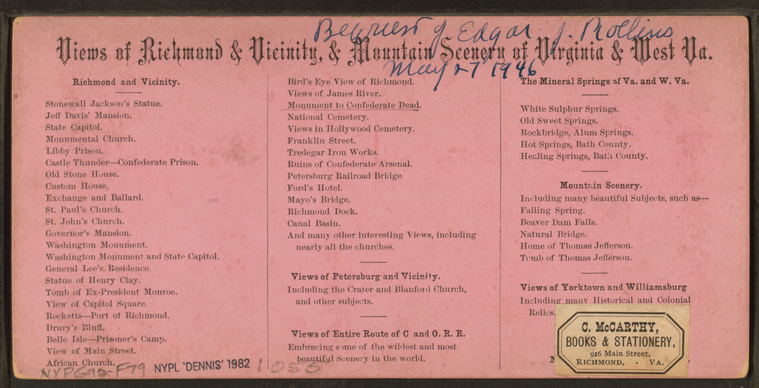 Bequest of Edgar J. Rollins
May 27 1946
Views of Richmond & Vicinity, & Mountain Scenery of Virginia & West Va.
Richmond and Vicinity.
Stonewall Jackson's Statue.
Jeff Davis' Mansion.
State Capitol.
Monumental Church.
Libby Prison.
Castle Thunder—Confederate Prison.
Old Stone House.
Custom House,
Exchange and Ballard.
St. Paul's Church.
St. John's Church.
Governor's Mansion.
Washington Monument.
Washington Monument and State Capitol.
General Lee's Residence.
Statue of Henry Clay.
Tomb of Ex-President Monroe.
View of Capitol Square.
Rocketts—Port of Richmond.
Drury's Bluff.
Belle Isle—Prisoner's Camp.
View of Main Street.
African Church.
Bird's Eye View of Richmond.
Views of James River.
Monument to Confederate Dead.
National Cemetery.
Views in Hollywood Cemetery.
Franklin Street.
Tredegar Iron Works.
Ruins of Confederate Arsenal.
Petersburg Railroad Bridge.
Ford's Hotel.
Mayo's Bridge.
Richmond Dock.
Canal Basin.
And many other interesting Views, including
nearly all the churches.
Views of Petersburg and Vicinity.
Including the Crater and Blanford Church,
and other subjects.
Views of Entire Route of C and O. R. R.
Embracing some of the wildest and most
beautiful Scenery in the world.
The Mineral Springs of Va. and W. Va.
White Sulphur Springs.
Old Sweet Springs.
Rockbridge, Alum Springs.
Hot Springs, Bath County.
Healing Springs, Bath County.
Mountain Scenery.
Including many beautiful Subjects, such as—
Falling Spring.
Beaver Dam Falls.
Natural Bridge.
Home of Thomas Jefferson.
Tomb of Thomas Jefferson.
Views of Yorktown and Williamsburg
Including many Historical and Colonial
Relics.
C. McCARTHY,
BOOKS & STATIONERY,
916 Main Street,
RICHMOND, - VA.
NYPG92-F79 NYPL 'DENNIS' 1982 1055